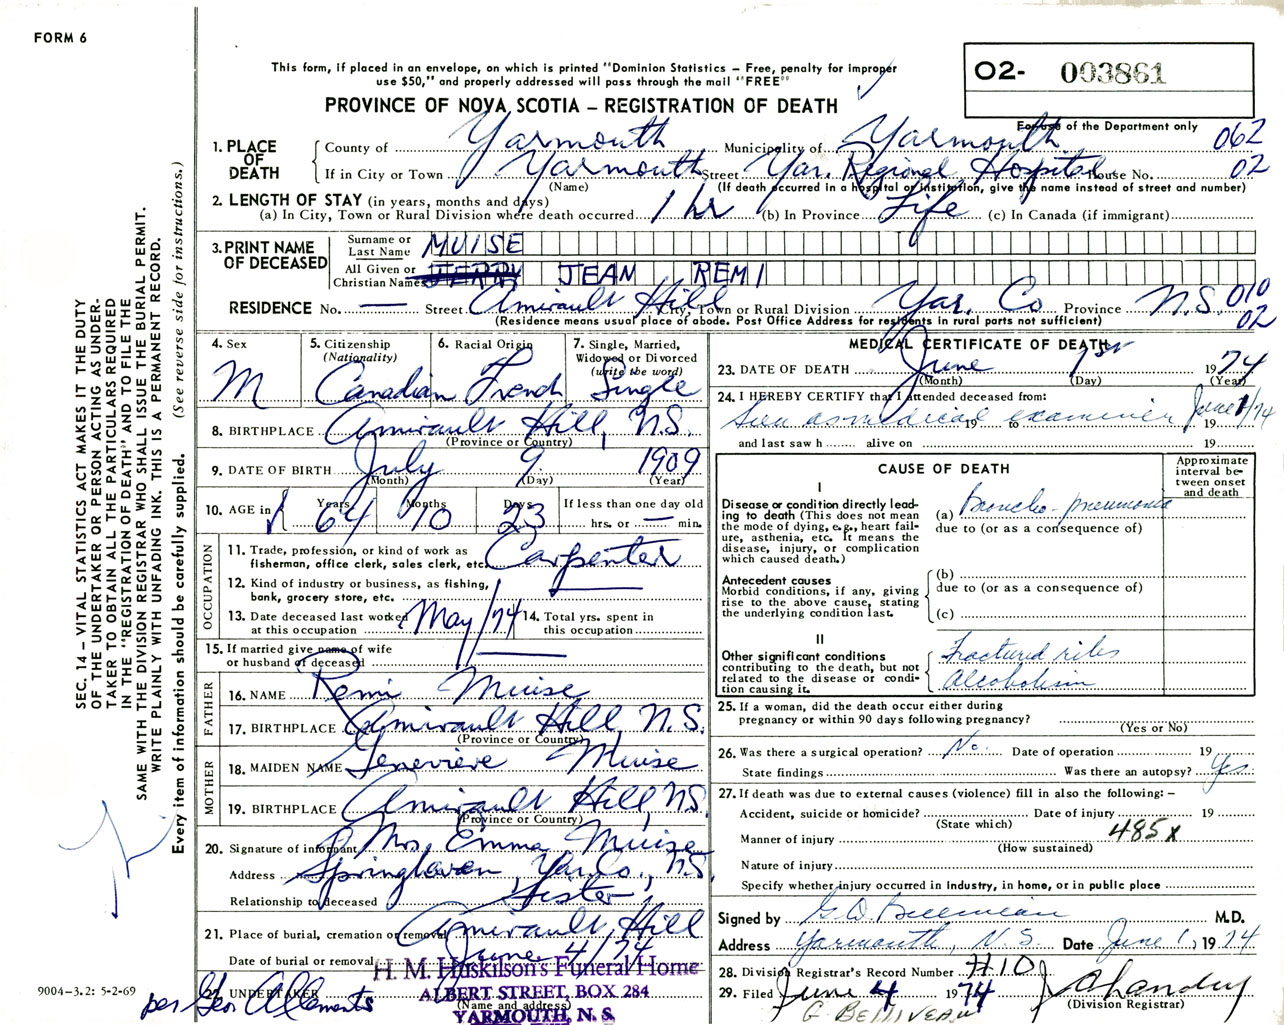 FORM 6
This form, if placed in an envelope, on which is printed "Dominion Statistics – Free, penalty for improper
use $50," and properly addressed will pass through the mail "FREE"
O2- 003861
PROVINCE OF NOVA SCOTIA – REGISTRATION OF DEATH
For use of the Department only
1. PLACE OF DEATH
County of Yarmouth Municipality of Yarmouth 062
If in City or Town Yarmouth Street Yar. Regional Hospital House No. 02
(Name) (If death occurred in a hospital or institution, give the name instead of street and number)
2. LENGTH OF STAY (in years, months and days)
(a) In City, Town or Rural Division where death occurred 1 hr (b) In Province Life (c) In Canada (if immigrant)
3. PRINT NAME OF DECEASED
Surname or Last Name MUISE
All Given or Christian Names JERRY JEAN REMI
RESIDENCE No. — Street Amirault Hill City, Town or Rural Division Yar. Co Province N.S. 010
(Residence means usual place of abode. Post Office Address for residents in rural parts not sufficient) 02
4. Sex 5. Citizenship (Nationality) 6. Racial Origin 7. Single, Married, Widowed or Divorced (write the word)
M Canadian French Single
8. BIRTHPLACE Amirault Hill, N.S.
(Province or Country)
9. DATE OF BIRTH July 9 1909
(Month) (Day) (Year)
10. AGE in Years Months Days If less than one day old
64 10 23 hrs. or — min.
OCCUPATION
11. Trade, profession, or kind of work as
fisherman, office clerk, sales clerk, etc. Carpenter
12. Kind of industry or business, as fishing,
bank, grocery store, etc.
13. Date deceased last worked
at this occupation May/74
14. Total yrs. spent in
this occupation
15. If married give name of wife
or husband of deceased
FATHER
16. NAME Remi Muise
17. BIRTHPLACE Amirault Hill N.S.
(Province or Country)
MOTHER
18. MAIDEN NAME Genevieve Muise
19. BIRTHPLACE Amirault Hill, N.S.
(Province or Country)
20. Signature of informant Mrs. Emma Muise
Address Springhaven, Yar. Co., N.S.
Relationship to deceased Sister
21. Place of burial, cremation or removal Amirault Hill
Date of burial or removal June 4/74
22. UNDERTAKER
(Name and address)
H. M. Huskilson's Funeral Home
ALBERT STREET, BOX 284
YARMOUTH, N. S.
per Geo A Clements
MEDICAL CERTIFICATE OF DEATH
23. DATE OF DEATH June 1st 1974
(Month) (Day) (Year)
24. I HEREBY CERTIFY that I attended deceased from:
Seen as medical examiner 19 to June 1/74 19
and last saw h alive on 19
CAUSE OF DEATH
Approximate interval between onset and death
I
Disease or condition directly lead-
ing to death (This does not mean
the mode of dying, e.g., heart fail-
ure, asthenia, etc. It means the
disease, injury, or complication
which caused death.)
(a) Broncho-pneumonia
due to (or as a consequence of)
Antecedent causes
Morbid conditions, if any, giving
rise to the above cause, stating
the underlying condition last.
(b)
due to (or as a consequence of)
(c)
II
Other significant conditions
contributing to the death, but not
related to the disease or condi-
tion causing it.
Fractured ribs
Alcoholism
25. If a woman, did the death occur either during
pregnancy or within 90 days following pregnancy?
(Yes or No)
26. Was there a surgical operation? No. Date of operation 19
State findings Was there an autopsy? Yes
27. If death was due to external causes (violence) fill in also the following: –
Accident, suicide or homicide? Date of injury 19
(State which)
Manner of injury 485x
(How sustained)
Nature of injury
Specify whether injury occurred in industry, in home, or in public place
Signed by G.D. M.D.
Address Yarmouth, N.S. Date June 1, 1974
28. Division Registrar's Record Number #10
29. Filed June 4 1974
(Division Registrar)
G BELLIVEAU
SEC. 14 – VITAL STATISTICS ACT MAKES IT THE DUTY
OF THE UNDERTAKER OR PERSON ACTING AS UNDER-
TAKER TO OBTAIN ALL THE PARTICULARS REQUIRED
IN THE "REGISTRATION OF DEATH" AND TO FILE THE
SAME WITH THE DIVISION REGISTRAR WHO SHALL ISSUE THE BURIAL PERMIT.
WRITE PLAINLY WITH UNFADING INK. THIS IS A PERMANENT RECORD.
Every item of information should be carefully supplied. (See reverse side for instructions.)
9004-3.2: 5-2-69